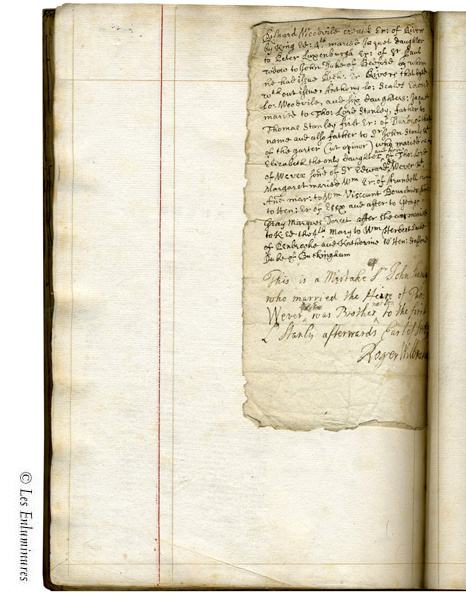 Richard Woodvile created Er: of River
by King Ed: 4th maried Jaquet daughter
to Peter Luxenburgh Er: of St Paul
widow to John Duke of Bedford by whom
he had issue Rich: Er: Rivers that dyed
without issue: Anthony lo: Scales
Lo: Woodvile, and six daughters: Jaquet
maried to Tho: Lord Stanley, father to
Thomas Stanley first Er: of Darby of that
name and also father to Sr John Stanley
of the garter (ut opinor) who maried
Elizabeth the only daughter of Tho: Lord
of Wever sonne of Sr Edward Wever
Margaret maried Wm Er: of Arundell
Ann mar: to Wm Viscount Bourchier
to Hen: Er of Essex and after to George
Gray Marques Dorset after she was maried
to K. Ed the 4th Mary to Wm Herbert
of Penbrooke and Katherine to Hen: Stafford
Duke of Buckingham
This is a Mistake Sr John
who married the Heire of Tho:
Wever was Brother to the first
Ld Stanly afterwards Earl of
Roger
© Les Enluminures